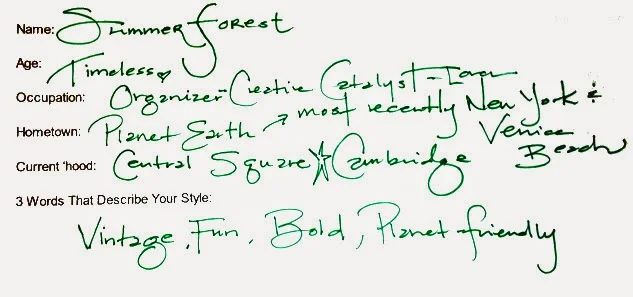 Name: Summer Forest
Age: Timeless
Occupation: Organizer-Creative Catalyst-
Hometown: Planet Earth → most recently New York &
Venice
Beach
Current 'hood: Central Square ☆ Cambridge
3 Words That Describe Your Style:
Vintage, Fun, Bold, Planet-friendly